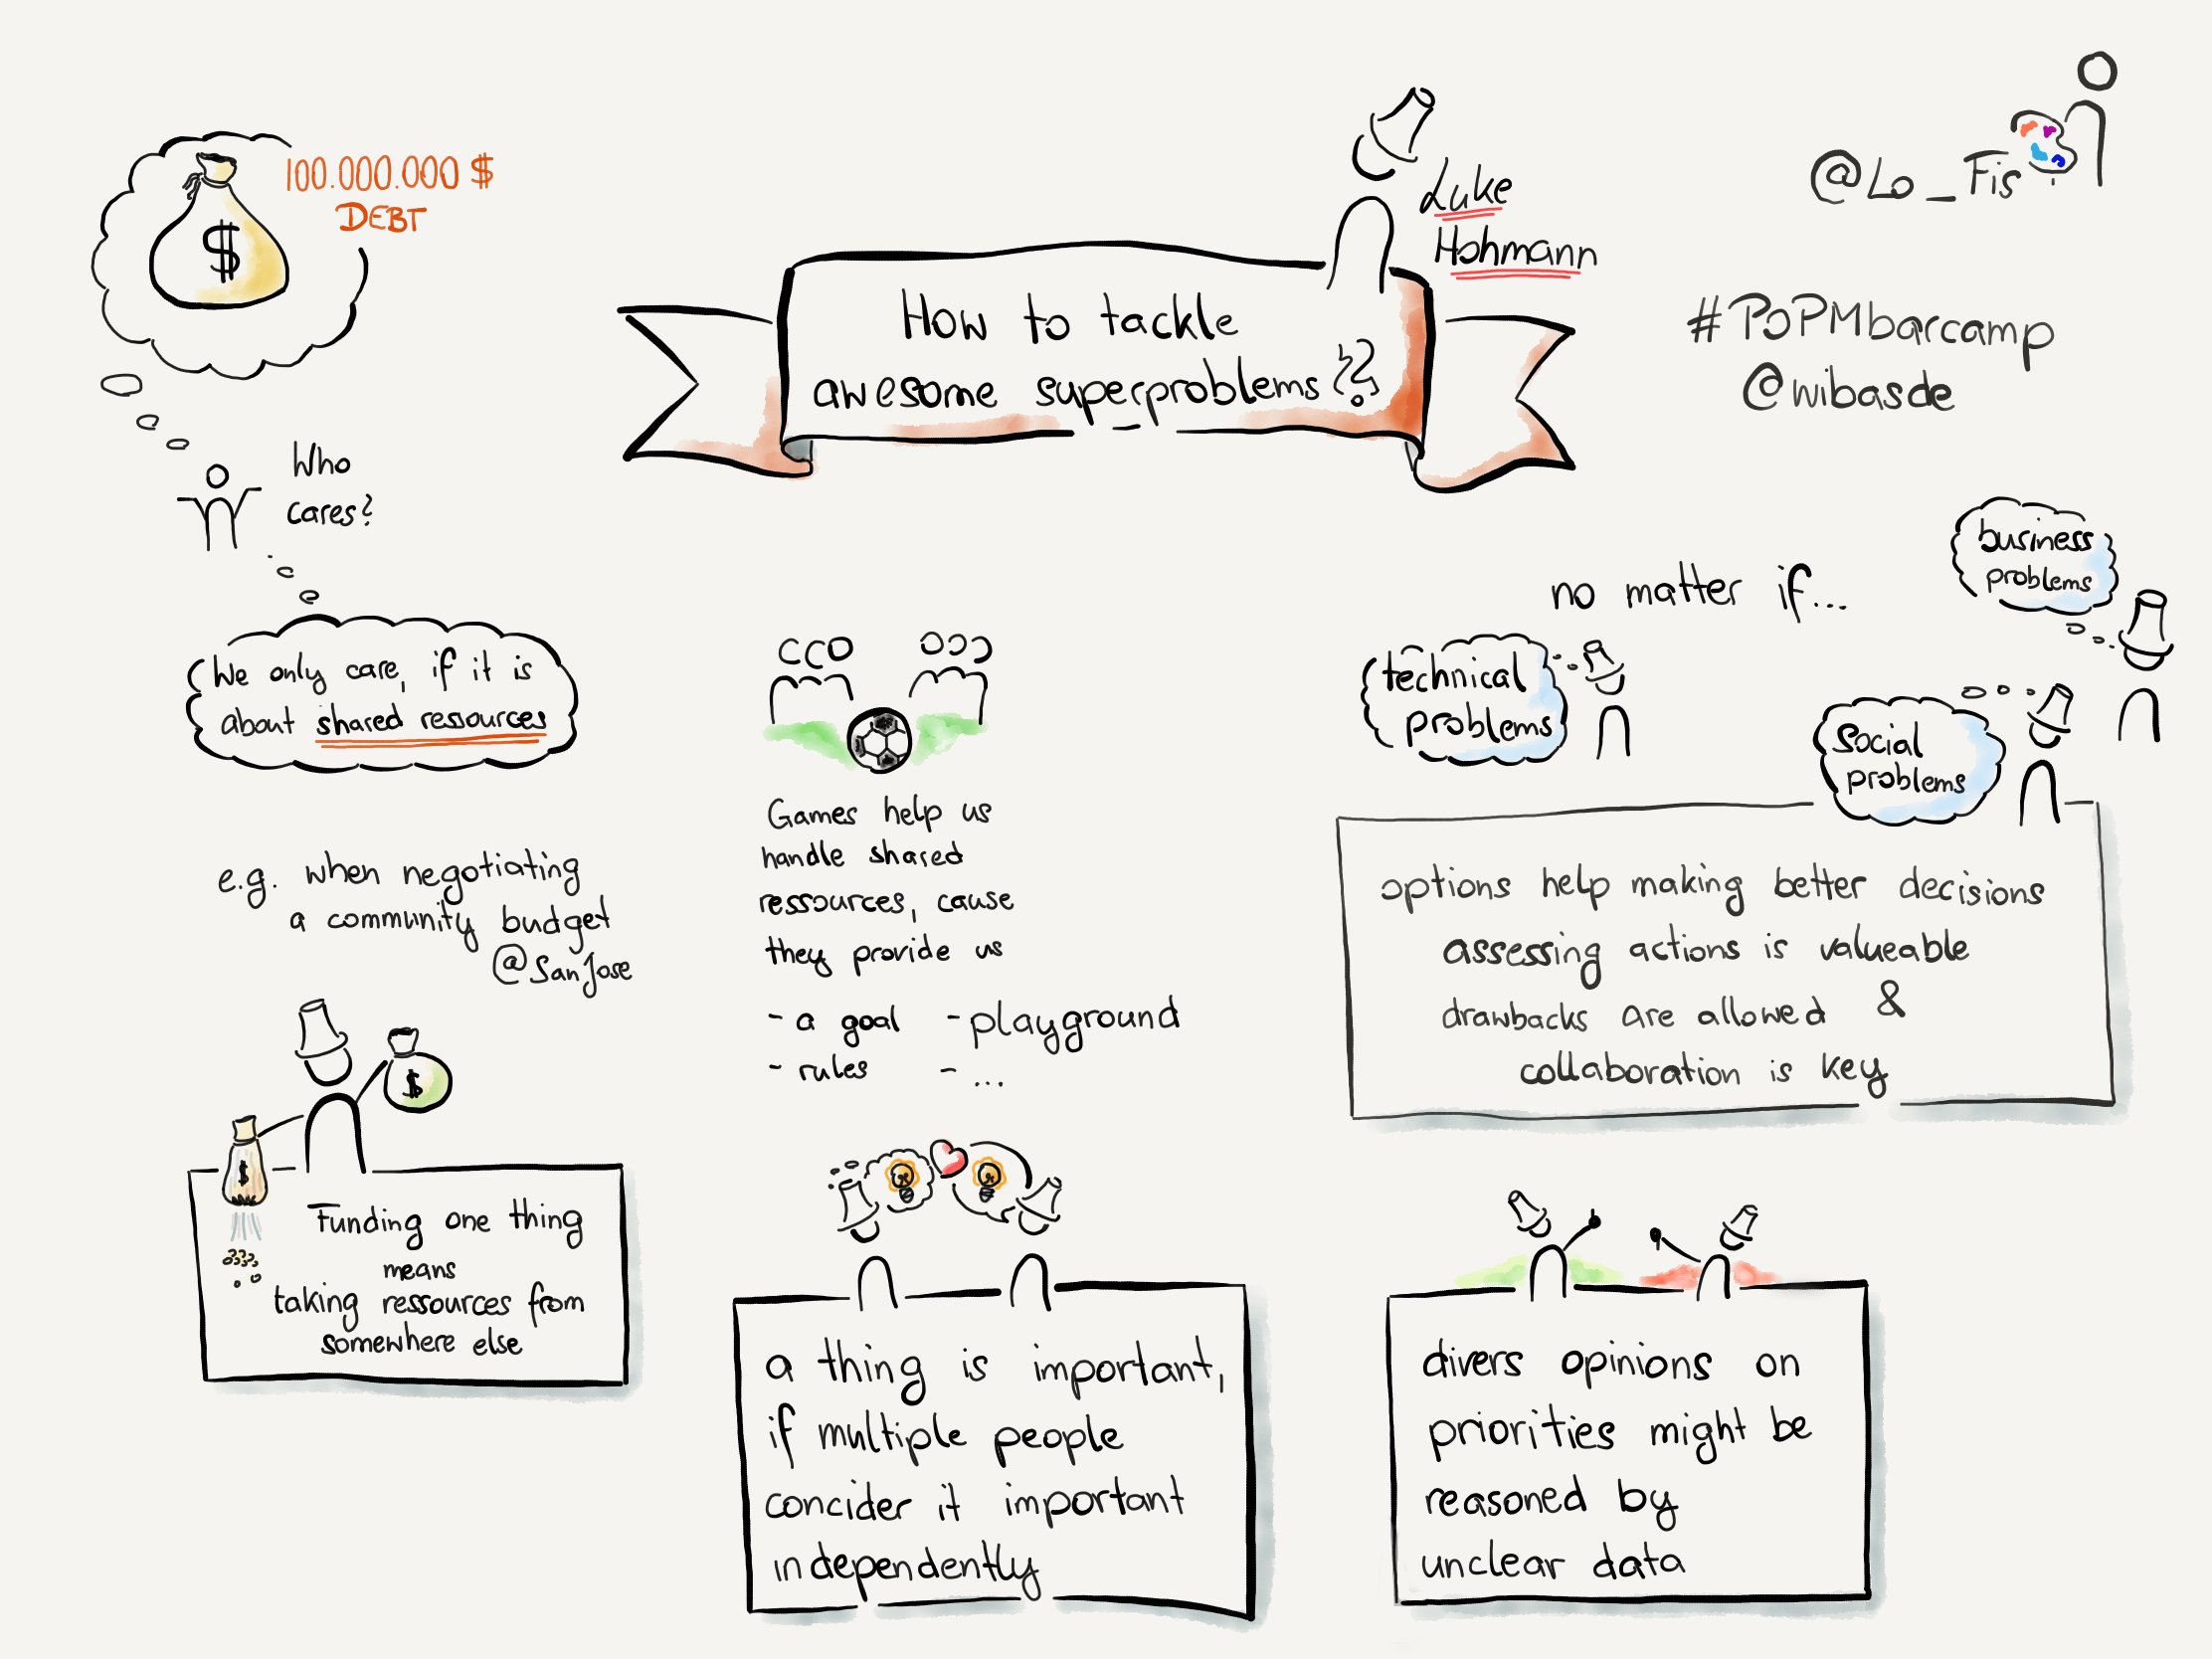 100.000.000 $
DEBT
$
Who
cares?
We only care, if it is
about shared ressources
e.g. when negotiating
a community budget
@SanJose
$
$
Funding one thing
means
taking ressources from
somewhere else
Luke
Hohmann
How to tackle
awesome superproblems??
@Lo_Fis
#POPMbarcamp
@wibasde
Games help us
handle shared
ressources, cause
they provide us
- a goal - playground
- rules - ...
a thing is important,
if multiple people
concider it important
independently
no matter if...
business
problems
technical
problems
Social
problems
options help making better decisions
assessing actions is valueable
drawbacks are allowed &
collaboration is key
divers opinions on
priorities might be
reasoned by
unclear data